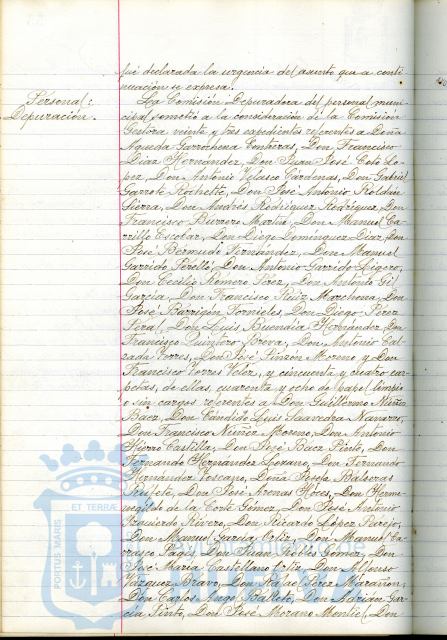 fué declarada la urgencia del asunto que a conti
nuación se expresa.
Personal:
Depuración.
La Comisión Depuradora del personal muni
cipal sometió a la consideración de la Comisión
Gestora veinte y tres expedientes referentes a Doña
Agueda Garrochena Contreras, Don Francisco
Diaz Hernández, Don Juan José Coto Ló
pez, Don Antonio Velasco Cárdenas, Don Gabriel
Garrote Rochette, Don José Antonio Roldán
Sierra, Don Andrés Rodríguez Rodríguez, Don
Francisco Burrero Martín, Don Manuel Ca
rrillo Escobar, Don Diego Domínguez Diaz, Don
José Bermudo Fernández, Don Manuel
Garrido Perelló, Don Antonio Garrido Ligero,
Don Cecilio Romero Pérez, Don Antonio Gil
García, Don Francisco Ruiz Marchena, Don
José Barrigón Tornieles, Don Diego Pérez
Peral, Don Luis Buendía Hernández, Don
Francisco Quintero Breva, Don Antonio Cal
zada Torres, Don José Pinzón Moreno y Don
Francisco Torres Velez, y cincuenta y cuatro car
petas, de ellas cuarenta y ocho de papel limpio
o sin cargos referentes a Don Guillermo Núñez
Baez, Don Cándido Luis Saavedra Navarro,
Don Francisco Núñez Moreno, Don Antonio
Hierro Castilla, Don José Baez Pinto, Don
Fernando Hernández Lozano, Don Fernando
Hernández Toscano, Doña Josefa Balseras
Don José Arenas Don Herme
negildo de la Corte Gómez, Don José Antonio
Izquierdo Rivero, Don Ricardo López Parejo,
Don Manuel García Ortiz, Don Manuel Ca
rrasco Pagés, Don Juan Robles Gómez, Don
José María Castellano Ortiz, Don Alfonso
Vázquez Bravo, Don Rafael Pérez Marañón,
Don Carlos Don Adrián Gar
cía Pinto, Don José Morano Montiel, Don
PORTUS MARIS ET TERRÆ